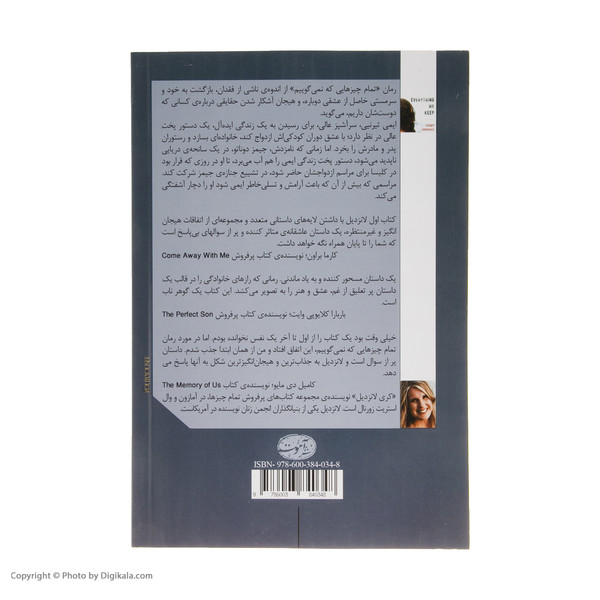 رمان «تمام چیزهایی که نمی‌گوییم» از اندوه‌ی ناشی از فقدان، بازگشت به خود و
سرمستی حاصل از عشقی دوباره، و هیجان آشکار شدن حقایقی درباره‌ی کسانی که
دوست‌شان داریم، می‌گوید.
ایمی تیرنیی، سرآشپز عالی، برای رسیدن به یک زندگی ایده‌آل، یک دستور پخت
عالی در نظر دارد؛ با عشق دوران کودکی‌اش ازدواج کند، خانواده‌ای بسازد و رستوران
پدر و مادرش را بخرد. اما زمانی که نامزدش، جیمز دوناتو، در یک سانحه‌ی دریایی
ناپدید می‌شود، دستور پخت زندگی ایمی را هم آب می‌برد، تا او در روزی که قرار بود
در کلیسا برای مراسم ازدواجشان حاضر شود، در تشییع جنازه‌ی جیمز شرکت کند.
مراسمی که بیش از آن که باعث آرامش و تسلی‌خاطر ایمی شود او را دچار آشفتگی
می‌کند.
کتاب اول لانزدیل با داشتن لایه‌های داستانی متعدد و مجموعه‌ای از اتفاقات هیجان
انگیز و غیرمنتظره، یک داستان عاشقانه‌ی متاثر کننده و پر از سوالهای بی‌پاسخ است
که شما را تا پایان همراه نگه خواهد داشت.
کارما براون؛ نویسنده‌ی کتاب پرفروش Come Away With Me
یک داستان مسحور کننده و به یاد ماندنی. رمانی که رازهای خانوادگی را در قالب یک
داستان پر تعلیق از غم، عشق و هنر را به تصویر می‌کشد. این کتاب یک گوهر ناب
است.
باربارا کلایوپی وایت؛ نویسنده‌ی کتاب پرفروش The Perfect Son
خیلی وقت بود یک کتاب را از اول تا آخر یک نفس نخوانده بودم. اما در مورد رمان
تمام چیزهایی که نمی‌گوییم، این اتفاق افتاد و من از همان ابتدا جذب شدم. داستان
پر از سوال است و لانزدیل به جذاب‌ترین و هیجان‌انگیزترین شکل به آنها پاسخ می
دهد.
کامیل دی مایو؛ نویسنده‌ی کتاب The Memory of Us
«کری لانزدیل» نویسنده‌ی مجموعه کتاب‌های پرفروش تمام چیزها، در آمازون و وال
استریت ژورنال است. لانزدیل یکی از بنیانگذاران انجمن زنان نویسنده در آمریکاست.
EVERYTHING
WE
KEEP
آموت
ISBN- 978-600-384-034-8
9 786003 840348
Copyright © Photo by Digikala.com